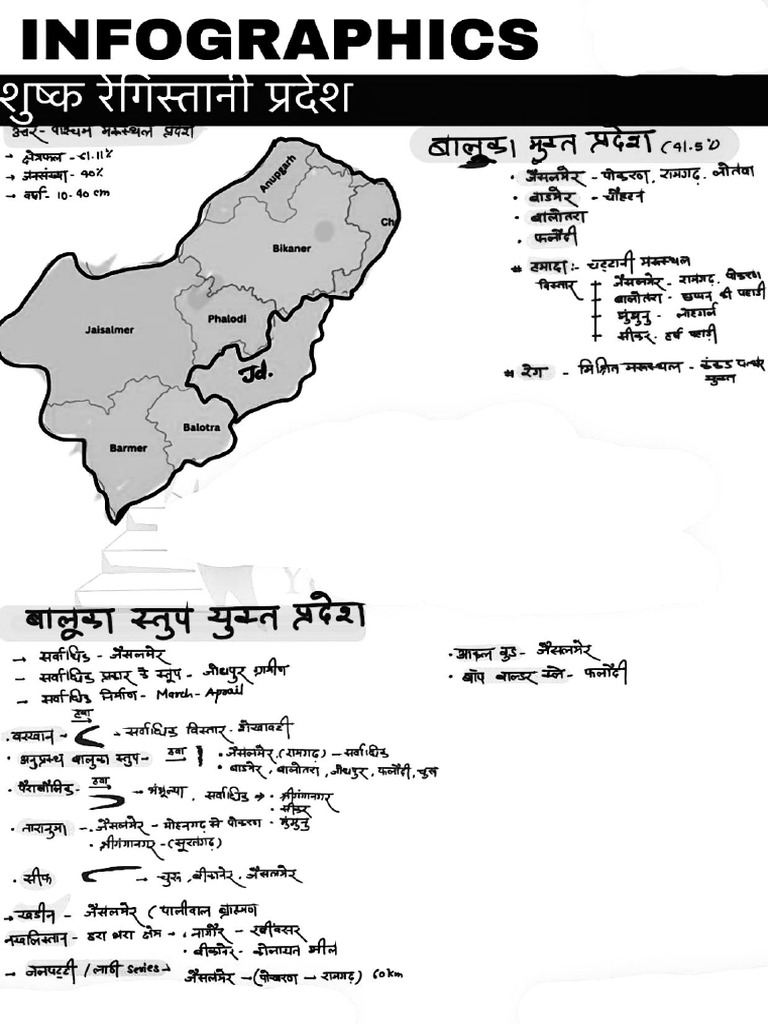 INFOGRAPHICS
शुष्क रेगिस्तानी प्रदेश
उत्तर - पश्चिम मरुस्थल प्रदेश
→ क्षेत्रफल - 61.11%
→ जनसंख्या - 40%
→ वर्षा - 10-40 cm
Anupgarh
Ch
Bikaner
Jaisalmer
Phalodi
Jd.
Balotra
Barmer
बालूका मुक्त प्रदेश (41.5%)
• जैसलमेर - पोकरण, रामगढ़, लोतवा
• बाडमेर - चौहटन
• बालोतरा
• फलौदी
# हमादा :- चट्टानी मरुस्थल
विस्तार
जैसलमेर - रामगढ़, पोकरण
बालोतरा - छप्पन की पहाड़ी
झुंझुनु - लोहार्गल
सीकर - हर्ष पहाड़ी
# रेग - मिश्रित मरुस्थल - कंकड पत्थर
युक्त
बालूका स्तुप युक्त प्रदेश
→ सर्वाधिक - जैसलमेर
- सर्वाधिक प्रकार के स्तूप - जोधपुर ग्रामीण
→ सर्वाधिक निर्माण - March - April
हवा
• बरखान → - सर्वाधिक विस्तार - शेखावटी
• अनुप्रस्थ बालुका स्तुप - हवा • जैसलमेर, (रामगढ़) - सर्वाधिक
• बाडमेर, बालोतरा, जोधपुर, फलौदी, चुरु
• पैराबोलिक - हवा → भंभूल्या, सर्वाधिक → • श्रीगंगानगर
• सीकर
• झुंझुनु
• तारानुमा - • जैसलमेर - मोहनगढ़ से पोकरण
• श्रीगंगानगर - (सूरतगढ़)
• सीफ → चुरू, बीकानेर, जैसलमेर
→ खडीन - जैसलमेर (पालीवाल ब्राह्मण
नखलिस्तान - हरा भरा क्षेत्र → • नागौर -
• बीकानेर - कोलायत झील
→ जलपट्टी / लाठी series → जैसलमेर → (पोखरण → रामगढ़) 60km
• आकल वुड - जैसलमेर
• बॉप बाल्डर क्ले - फलौदी